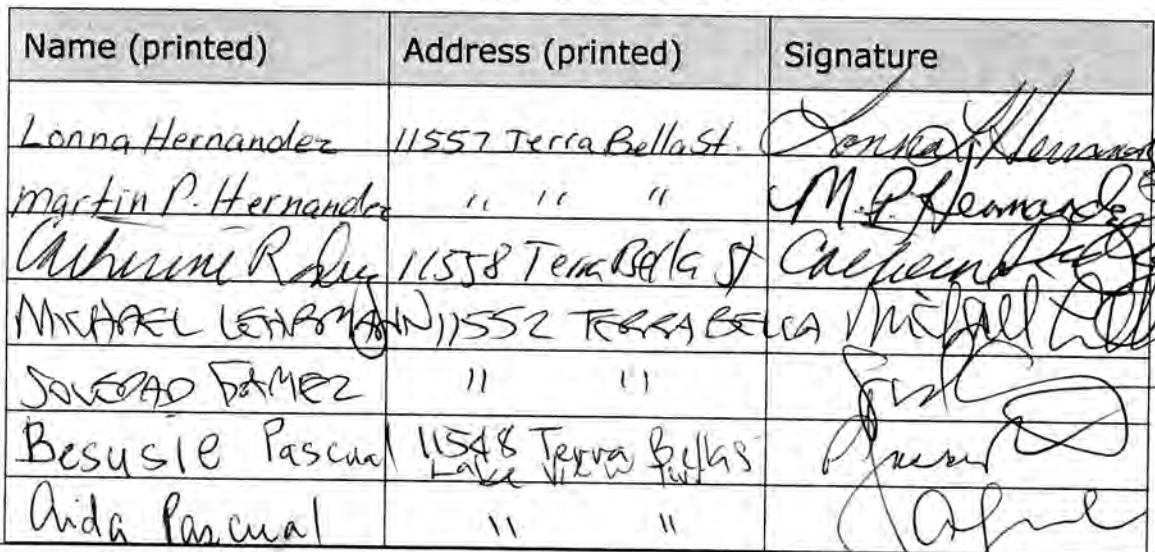 Name (printed) Address (printed) Signature
Lonna Hernandez 11557 Terra Bella St. Lonna L Hernandez
Martin P. Hernandez " " " M.P. Hernandez
Catherine 11558 Terra Bella St Catherine
MICHAEL LEHRMANN 11552 TERRA BELLA Michael
SOLEDAD GAMEZ " "
Besusie Pascual 11548 Terra Bella S
Lake View
Aida Pascual " "